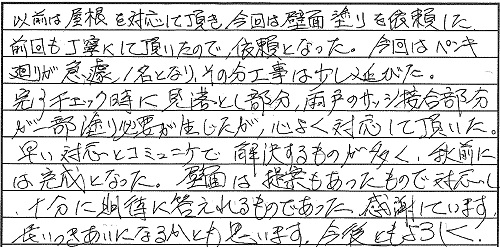 以前は屋根を対応して頂き、今回は壁面塗りを依頼した
前回も丁寧にして頂いたので、依頼となった。今回はペンキ
廻りが急遽1名となり、その分工事は少し延びた。
完了チェック時に見落とし部分、雨戸のサッシ接合部分
が一部塗り必要が生じたが、心よく対応して頂いた。
早い対応とコミュニケで解決するものが多く、秋前に
は完成となった。壁面は提案もあったもので対応し
、十分に期待に答えれるものであった。感謝しています。
長いつきあいになるかとも思います。今後ともよろしく、